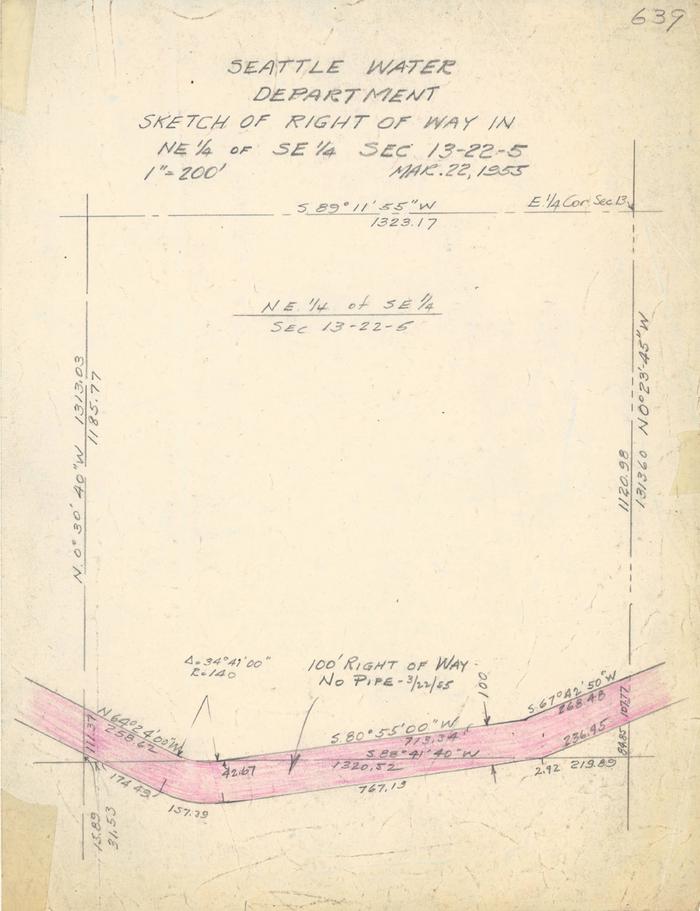 639
SEATTLE WATER
DEPARTMENT
SKETCH OF RIGHT OF WAY IN
NE 1/4 OF SE 1/4 SEC 13-22-5
1"=200' MAR. 22, 1955
S 89° 11' 55" W
1323.17
E. 1/4 Cor. Sec 13
NE 1/4 of SE 1/4
SEC 13-22-5
N. 0° 30' 40" W 1313.03
1185.77
1120.98
1313.60 N 0° 23'-45" W
Δ=34°41'00"
R=140
100' RIGHT OF WAY
NO PIPE - 3/22/55
100'
N 64°24'00" W
258.62
111.37
S. 80° 55' 00" W
713.34'
S 88° 41' 40" W
1320.52
767.13
S 67° 42' 50" W
268.48
107.77
236.95
84.85
2.92 219.89
42.67
174.49
157.39
15.89
31.53